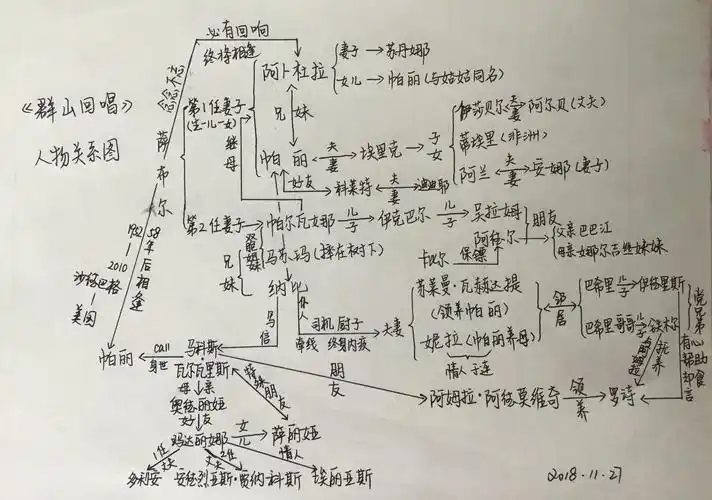 《群山回唱》
人物关系图
必有回响
终将相逢
念念不忘
萨布尔
第1任妻子
(生一儿一女)
继母
阿卜杜拉
妻子→苏丹娜
女儿→帕丽(与姑姑同名)
兄妹
帕丽
夫妻
埃里克
子女
伊莎贝尔
夫妻
阿尔贝(丈夫)
蒂埃里(非洲)
阿兰
夫妻
安娜(妻子)
好友
科莱特
夫妻
迪迪耶
第2任妻子
帕尔瓦娜
儿子
伊克巴尔
儿子
吴拉姆
朋友
双胞姐妹
马苏玛(摔在树下)
兄妹
纳比
仆人
卡比尔
保镖
阿德尔
父亲巴巴江
母亲娜尔吉丝妹妹
1952
58年后相逢
2010
美国
帕丽
写信
司机 厨子
牵线
夫妻
苏莱曼·瓦赫达提
(领养帕丽)
妮拉(帕丽养母)
情人
邻居
巴希里
儿子
伊德里斯
巴希里哥哥
儿子
铁木尔
堂兄弟
有心帮助却食言
call
身世
马科斯
朋友
阿姆拉·阿德莫维奇
领养
罗诗
瓦尔瓦里斯
母亲
奥德丽娅
好友
玛达丽娜
女儿
萨丽娅
朋友
情人
1任丈夫
2任丈夫
多利安
安德烈亚斯·贾纳科斯
埃丽亚斯
2018.11.27